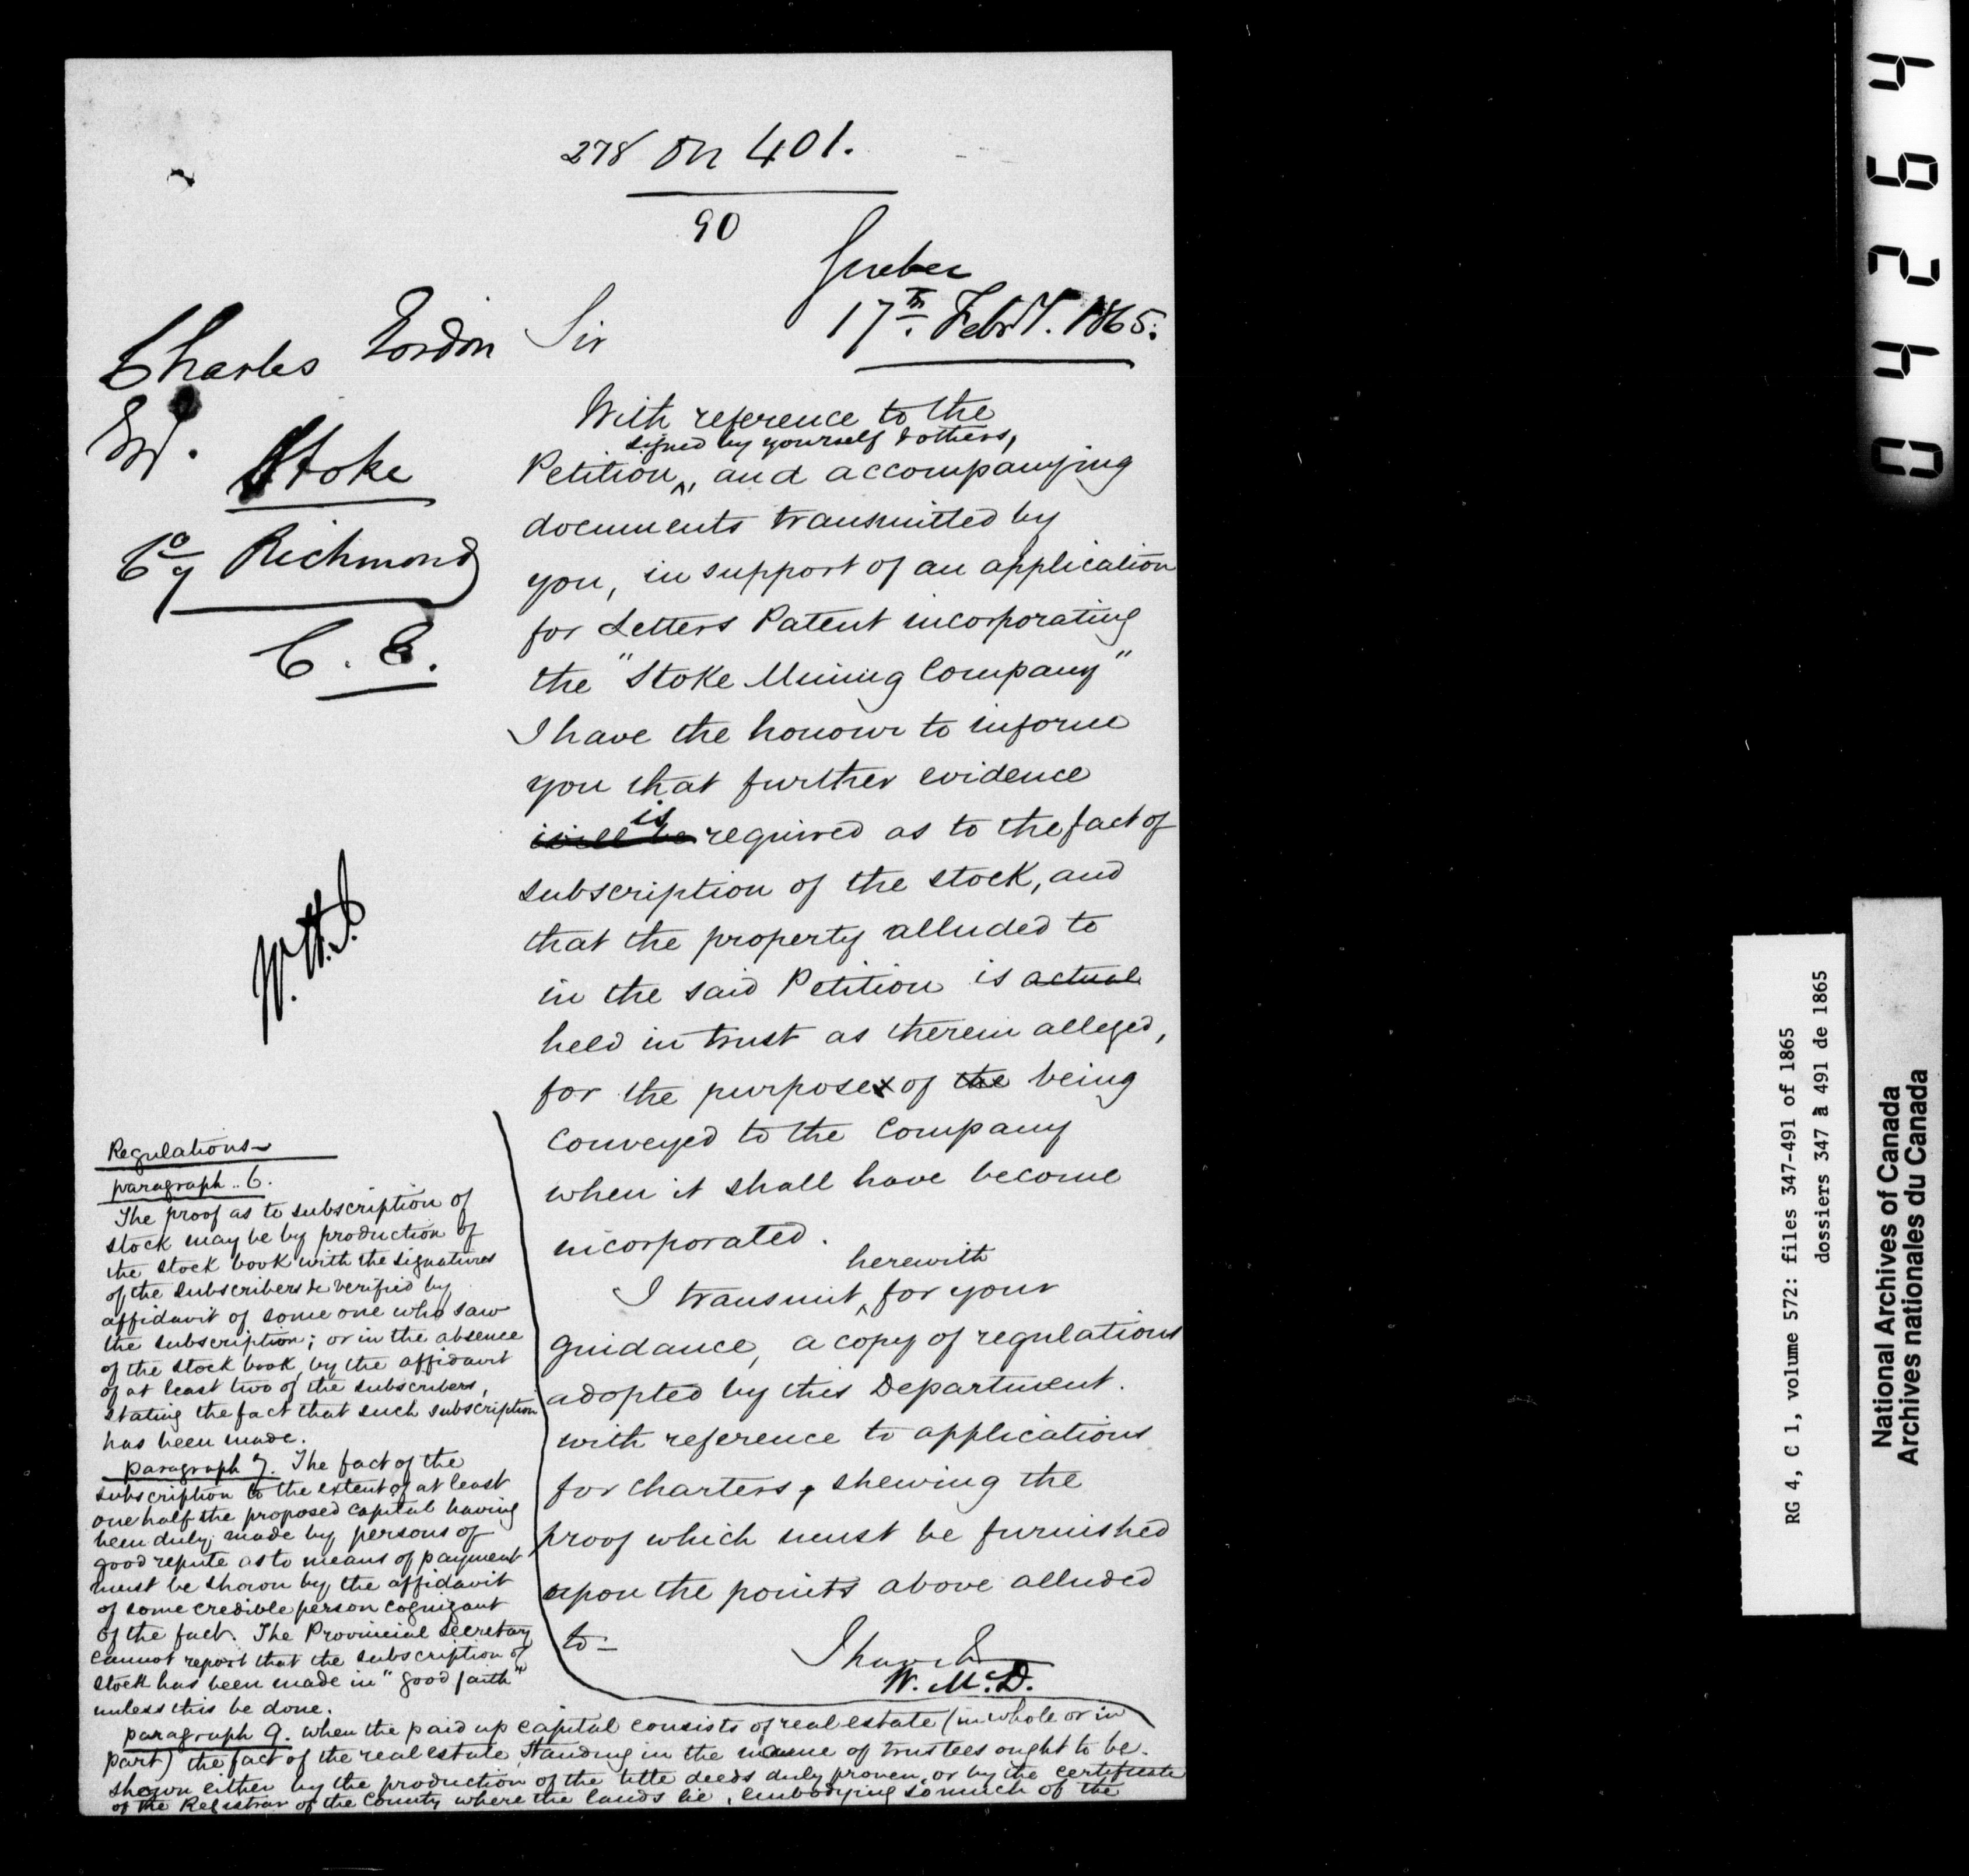 278 on 401.
90
Quebec
17th. Feb'y. 1865.
Charles Gordon
Stoke
Co. Richmond
C. E.
W. H. J.
Sir
With reference to the
signed by yourself & others,
Petition, and accompanying
documents transmitted by
you, in support of an application
for Letters Patent incorporating
the "Stoke Mining Company"
I have the honour to inform
you that further evidence
is
will be required as to the fact of
subscription of the stock, and
that the property alluded to
in the said Petition is actual
held in trust as therein alleged,
for the purposes of the being
conveyed to the Company
when it shall have become
incorporated.
herewith
I transmit, for your
guidance, a copy of regulations
adopted by this Department.
with reference to applications
for charters, shewing the
proof which must be furnished
upon the points above alluded
to—
I have &
W. McD.
Regulations
paragraph .. 6.
The proof as to subscription of
stock may be by production of
the stock book with the signatures
of the subscribers & verified by
affidavit of some one who saw
the subscription; or in the absence
of the stock book, by the affidavit
of at least two of the subscribers,
stating the fact that such subscription
has been made.
paragraph 7. The fact of the
subscription to the extent of at least
one half the proposed capital having
been duly made by persons of
good repute as to means of payment
must be shown by the affidavit
of some credible person cognizant
of the fact. The Provincial Secretary
cannot report that the subscription of
stock has been made in "good faith"
unless this be done.
paragraph 9. when the paid up capital consists of real estate (in whole or in
part) the fact of the real estate standing in the name of trustees ought to be
shown either by the production of the title deeds duly proven, or by the certificate
of the Registrar of the County where the lands lie, embodying so much of the
04264
RG 4, C 1, volume 572: files 347-491 of 1865
dossiers 347 à 491 de 1865
National Archives of Canada
Archives nationales du Canada